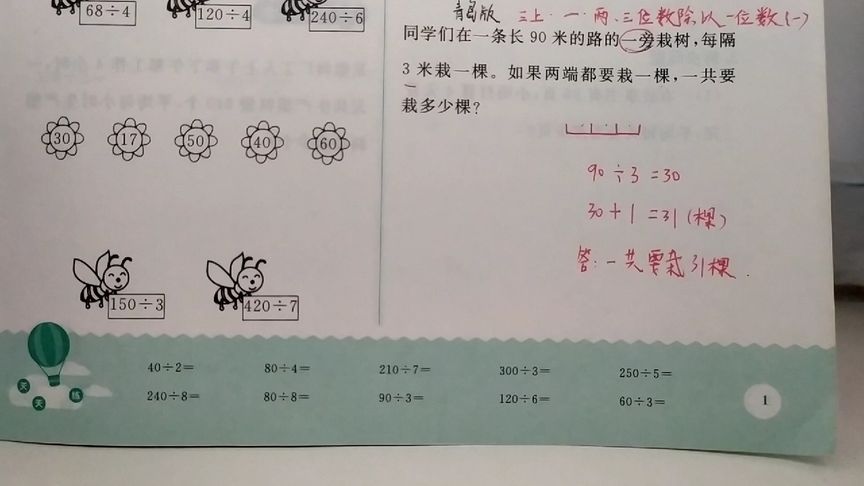 青岛版 三上·一·两、三位数除以一位数(一)
68÷4 120÷4 240÷6
30 17 50 40 60
150÷3 420÷7
同学们在一条长 90 米的路的一旁栽树，每隔
3 米栽一棵。如果两端都要栽一棵，一共要
栽多少棵？
90÷3=30
30+1=31(棵)
答：一共要栽31棵.
40÷2= 80÷4= 210÷7= 300÷3= 250÷5=
240÷8= 80÷8= 90÷3= 120÷6= 60÷3=
天天练
1